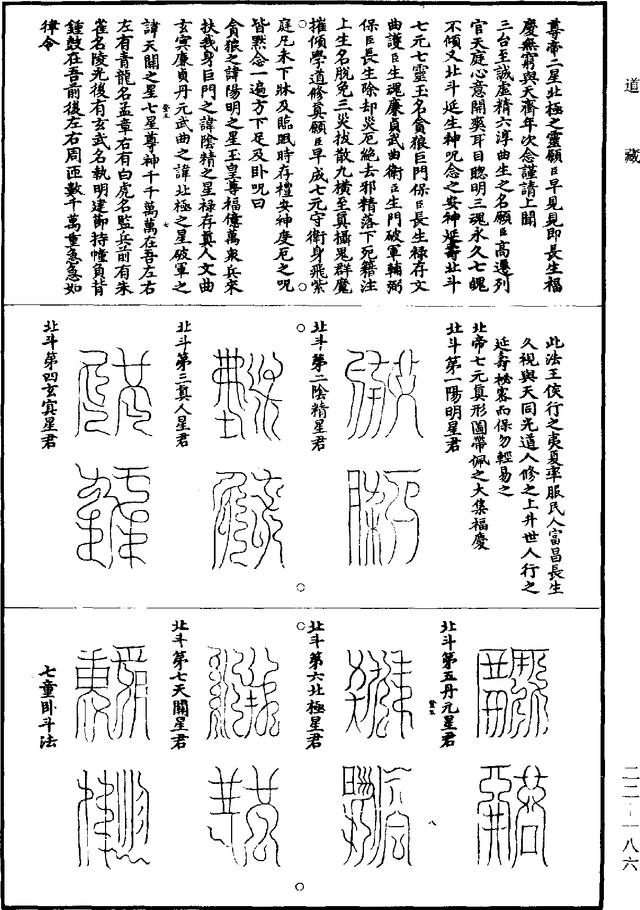 道藏
尊帝二星北極之靈願臣早見見即長生福
慶無窮與天齊年次念謹請上聞
三台至誠虛精六淳曲生之名願臣高遷列
官天庭心意開奕耳目聰明三魂永久七魄
不傾又北斗延生神呪念之安神延壽北斗
七元七靈玉名貪狼巨門保臣長生祿存文
曲護臣生魂廉貞武曲衛臣生門破軍輔弼
保臣長生除却災厄絕去邪精落下死籍注
上生名脫免三災拔散九橫至真攝鬼群魔
摧傾學道修真願臣早成七元守衛身飛紫
庭凡未下牀及臨眠時存禮安神度厄之呪
皆黙念一遍方下足及卧呪曰
貪狼之諱陽明之星玉皇尊福僂萬衆兵來
扶我身巨門之諱陰精之星祿存真人文曲
玄冥廉貞丹元武曲之諱北極之星破軍之
諱天關之星七星尊神千千萬萬在吾左右
左有青龍名孟章右有白虎名監兵前有朱
雀名陵光後有玄武名執明建節持幢負背
鍾鼓在吾前後左右周匝數千萬重急急如
律令
此法王侯行之夷夏率服民人富昌長生
久視與天同光道人修之上升世人行之
延壽秘密而保勿輕易之
北帝七元真形圖帶佩之大集福慶
北斗第一陽明星君
北斗第二陰精星君
北斗第三真人星君
北斗第四玄冥星君
北斗第五丹元星君
北斗第六北極星君
北斗第七天關星君
七童卧斗法
二二-一八六